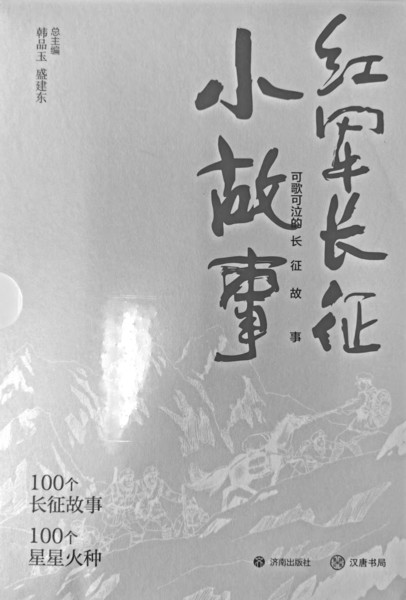 红军长征
小故事
可歌可泣的长征故事
总主编
韩品玉 盛建东
100个
长征故事
100个
星星火种
济南出版社
汉唐书局